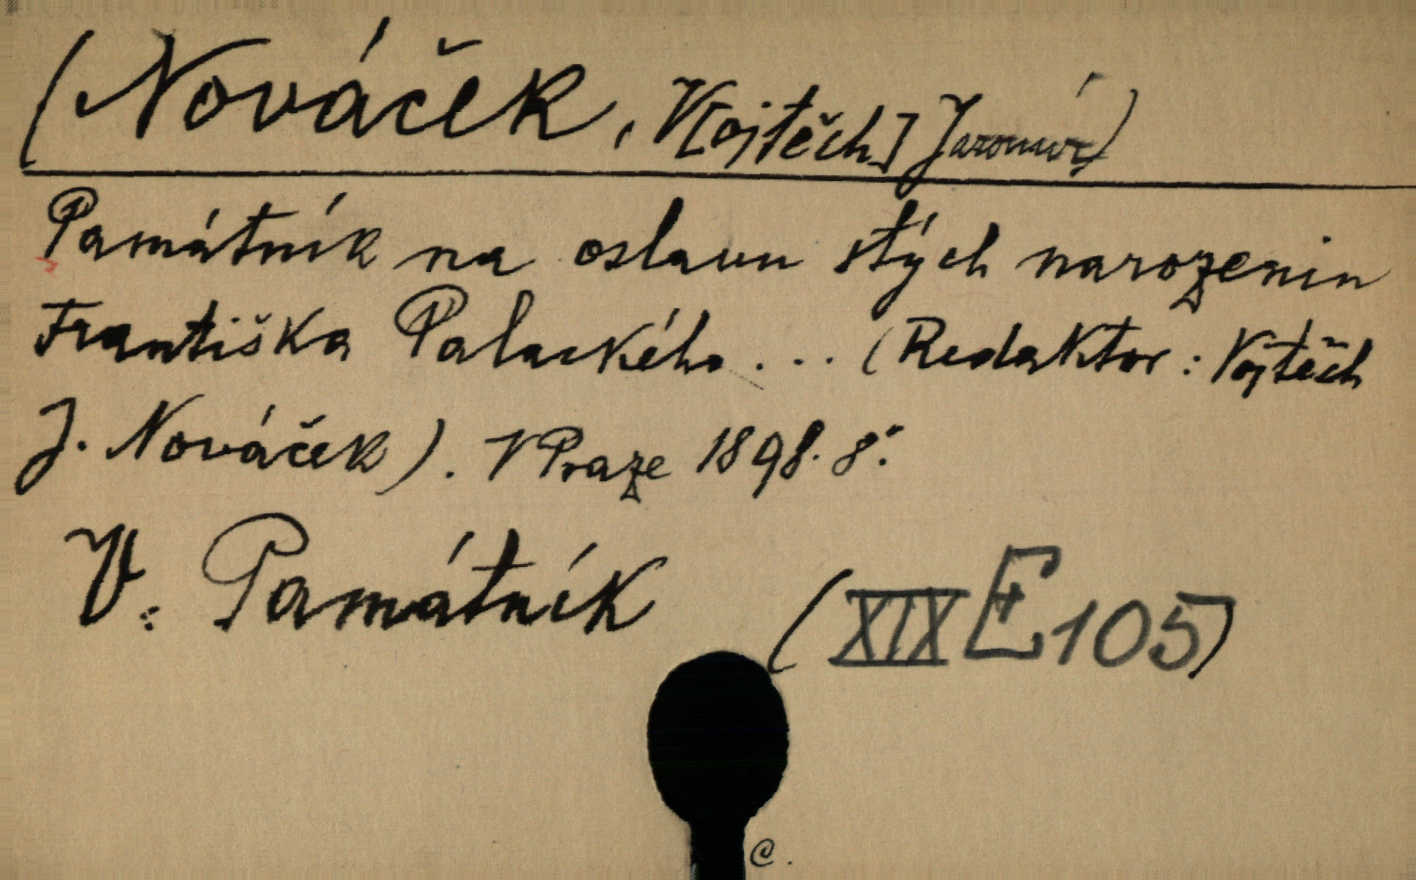 (Nováček, V[ojtěch] Jaromír)
Památník na oslavu stých narozenin
Františka Palackého ... (Redaktor: Vojtěch
J. Nováček). V Praze 1898. 8°.
V: Památník (XIX E 105)
C.